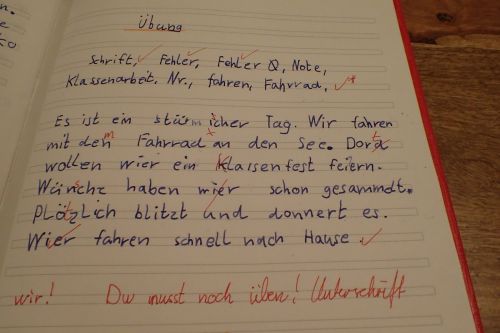 Übung
Schrift, Fehler, Fehler Q, Note,
Klassenarbeit, Nr., fahren, Fahrrad,
Es ist ein stürmicher Tag. Wir fahren
mit den m Fahrrad an den See. Dort
wollen wier ein Klassenfest feiern.
haben wier schon gesammdt.
Plötzlich blitzt und donnert es.
Wier fahren schnell nach Hause
wir! Du musst noch üben! Unterschrift